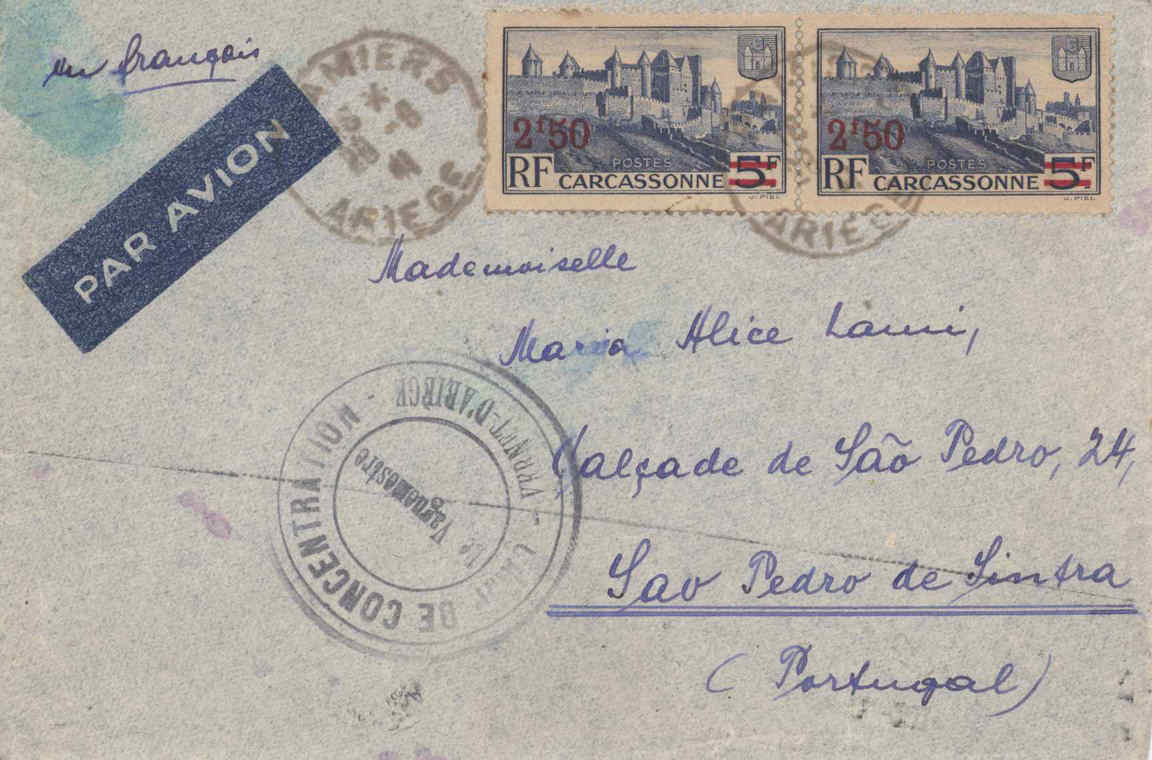 en français
PAR AVION
PAMIERS
ARIEGE
2F50
POSTES
5F
RF CARCASSONNE
J. PIEL
2F50
POSTES
5F
RF CARCASSONNE
J. PIEL
ARIEGE
Mademoiselle
Maria Alice Lami,
Calçade de São Pedro, 24,
Sao Pedro de Sintra
(Portugal)
CAMP DE CONCENTRATION - VERNET-D'ARIÈGE -
Le
Vaguemestre